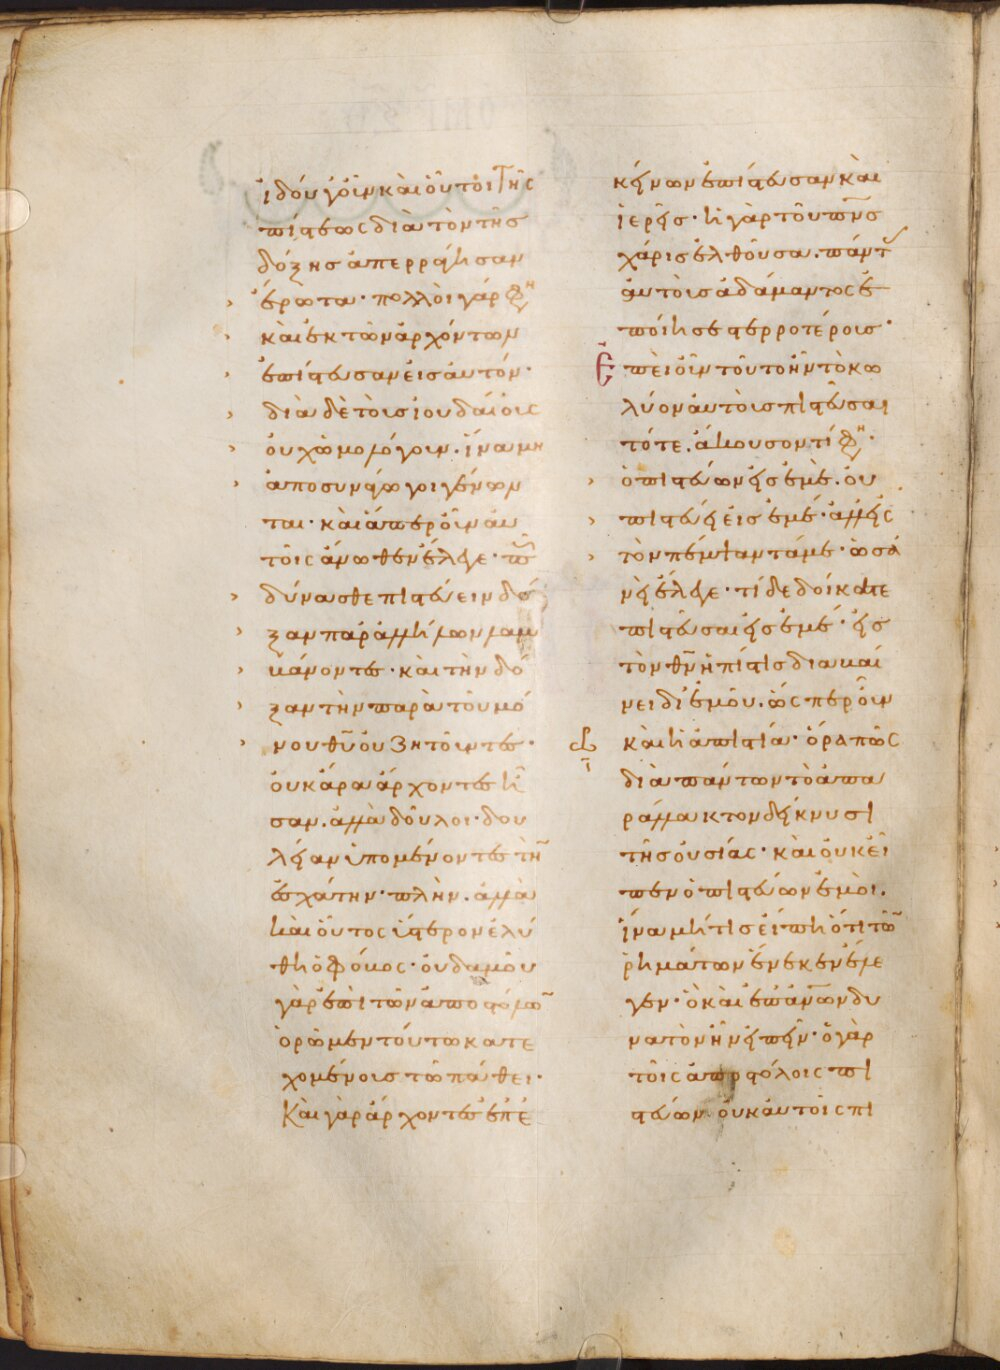 ἰδοὺ γοῦν καὶ οὗτοι τῆς
πίστεως διὰ τὸν τῆς
δόξης ἀπερράγησαν
ἔρωτα· πολλοὶ γάρ φη
καὶ ἐκ τῶν ἀρχόντων
ἐπίστευσαν εἰς αὐτόν·
διὰ δὲ τοὺς ἰουδαίους
οὐχ ὡμολόγουν. ἵνα μὴ
ἀποσυνάγωγοι γένων
ται· καὶ ἅπερ οὖν αὐ
τοῖς ἄνωθεν ἔλεγε· πῶς
δύνασθε πιστεύειν δό
ξαν παρ' ἀλλήλων λαμ
βάνοντες· καὶ τὴν δό
ξαν τὴν παρὰ τοῦ μό
νου θυ οὐ ζητοῦντες·
οὐκ ἄρα ἄρχοντες ἦ
σαν. ἀλλὰ δοῦλοι· δου
λείαν ὑπομένοντες τὴν
ἐσχάτην· πλὴν. ἀλλὰ
καὶ οὗτος ὕστερον ἐλύ
θη ὁ φόβος· οὐδαμοῦ
γὰρ ἐπὶ τῶν ἀποστόλων
ὁρῶμεν τούτω κατε
χομένοις τῶ πάθει·
Καὶ γὰρ ἄρχοντες ἐπ' ἐ
κείνων ἐπίστευσαν καὶ
ἱερεῖς· ἡ γὰρ τοῦ πνς
χάρις ἐλθοῦσα. πάντ
αὐτοὺς ἀδάμαντος ἐ
ποίησε στερροτέρους·
Ἐπεὶ οὖν τοῦτο ἦν τὸ κω
λύον αὐτοὺς πιστεῦσαι
τότε. ἄκουσον τί φη·
ὁ πιστεύων εἰς ἐμὲ. οὐ
πιστεύει εἰς ἐμέ· ἀλλ' εἰς
τὸν πέμψαντά με· ὡσα
νεὶ ἔλεγε· τί δεδοίκατε
πιστεῦσαι εἰς ἐμέ· εἰς
τὸν θν ἡ πίστις διαβαί
νει δι' ἐμοῦ. ὥσπερ οὖν
καὶ ἡ ἀπιστία· ὅρα πῶς
διὰ πάντων τὸ ἀπα
ράλλακτον δείκνυσι
τῆς οὐσίας· καὶ οὐκ εἶ
πεν ὁ πιστεύων ἐμοὶ.
ἵνα μή τις εἴπη ὅτι τῶν
ῥημάτων ἕνεκεν ἔλε
γεν· ὃ καὶ ἐπ' ἀνων δυ
νατὸν ἦν εἰπεῖν· ὁ γὰρ
τοῖς ἀποστόλοις πι
στεύων. οὐκ αὐτοῖς πι